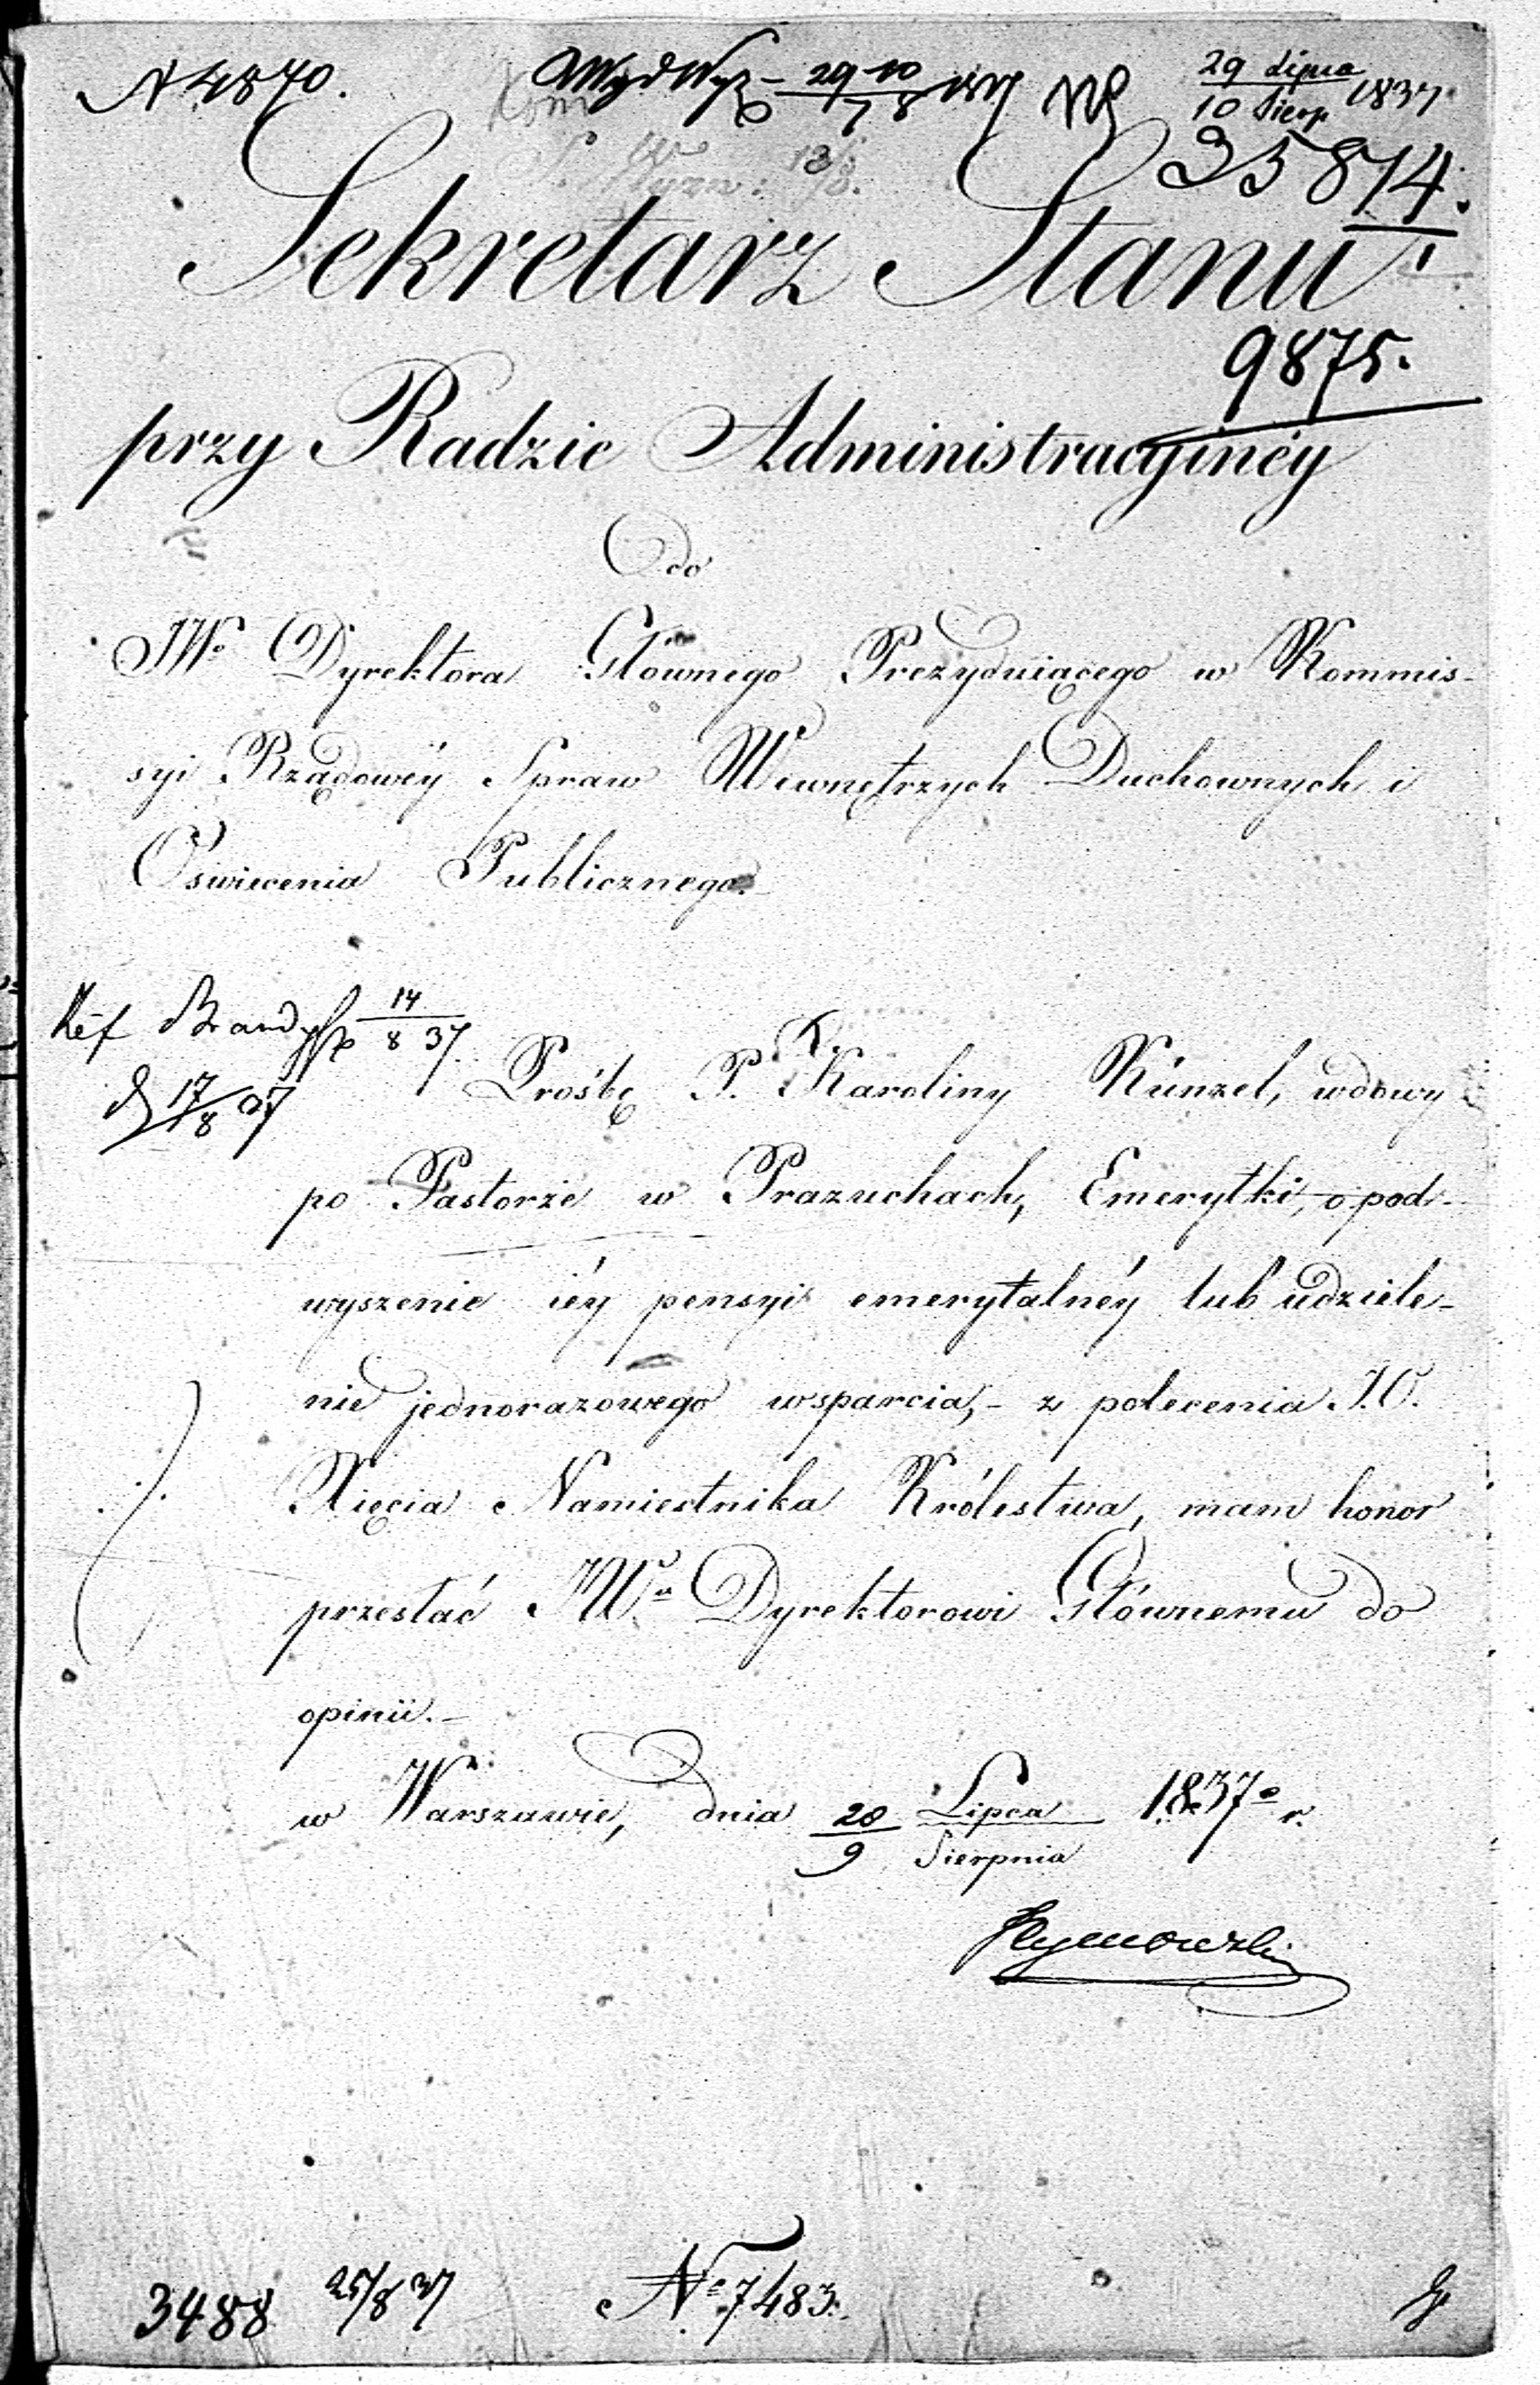 N 4840.
29 Lipca
10 Sierp 1837
35874.
Sekretarz Stanu
9875.
przy Radzie Administracyinéy
do
JWo Dyrektora Głównego Prezyduiącego w Kommis-
syi Rządowéy Spraw Wewnętrzych Duchownych i
Oświecenia Publicznego.
Ref Brand 14
8 37.
17/8 37
Prośbę P. Karoliny Künzel, wdowy
po Pastorze w Prazuchach, Emerytki, o pod-
wyszenie iéy pensyi emerytalnéy lub udziele-
nie jednorazowego wsparcia, - z polecenia J.O.
Xięcia Namiestnika Królestwa, mam honor
przesłać JWu Dyrektorowi Głównemu do
opinii. -
w Warszawie, dnia 28 Lipca 1837o r.
9 Sierpnia
3488 25/8 37 No 7483.